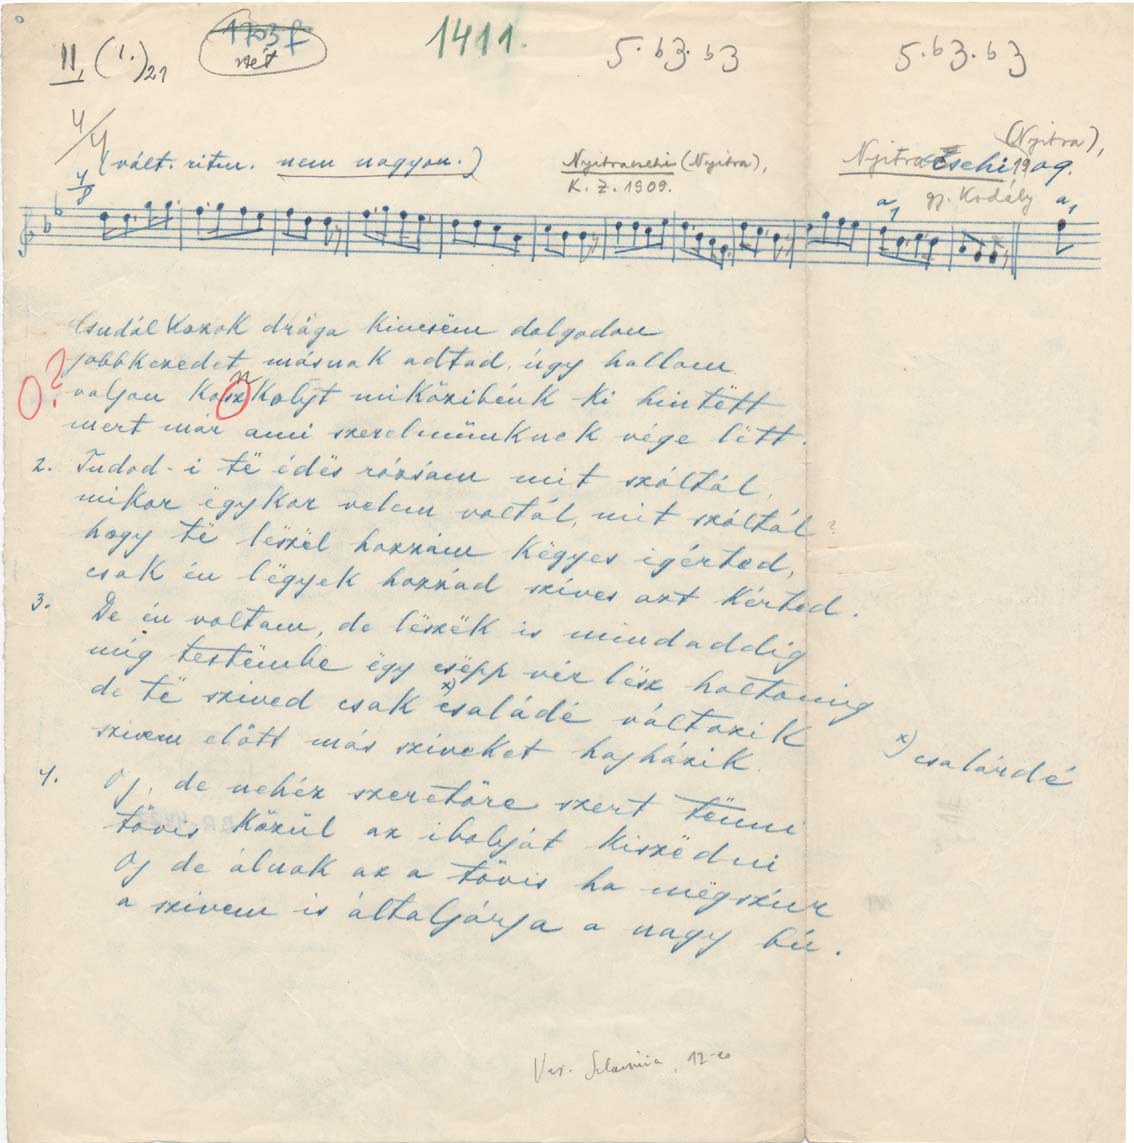 II, (1.) 21
1703 f
1411.
5. b3. b3
5. b3. b3
4/4
(vált. ritm. nem nagyon.)
Nyitracsehi (Nyitra),
K. Z. 1909.
(Nyitra),
Nyitracsehi, 1909.
gy. Kodály
4/8
a,
a,
Csudálkozok drága kincsëm dolgodon
jobbkezedet másnak adtad, úgy hallom
valjon koszkolyt miközibénk ki hintëtt
n
O?
mert már ami szerelmünknek vége lëtt.
2. Tudod-i të édës rózsám mit szóltál,
mikor ëgykor velem voltál, mit szóltál?
hogy të lëszël hozzám këgyes igérted,
csak én lëgyek hozzád szíves azt kérted.
3. De én voltam, de lëszëk is mindaddig
míg testëmbe ëgy csëpp vér lësz holtomig
de të szived csak x) családé változik
szivem előtt más sziveket hajházik.
x) csalárdé
4. Oj, de nehéz szeretőre szert tënni
tövis közül az ibolyát kiszëdni
Oj de álnok az a tövis ha mëgszúr
a szivem is általjárja a nagy bú.
Var. Sclavnia, 12-es